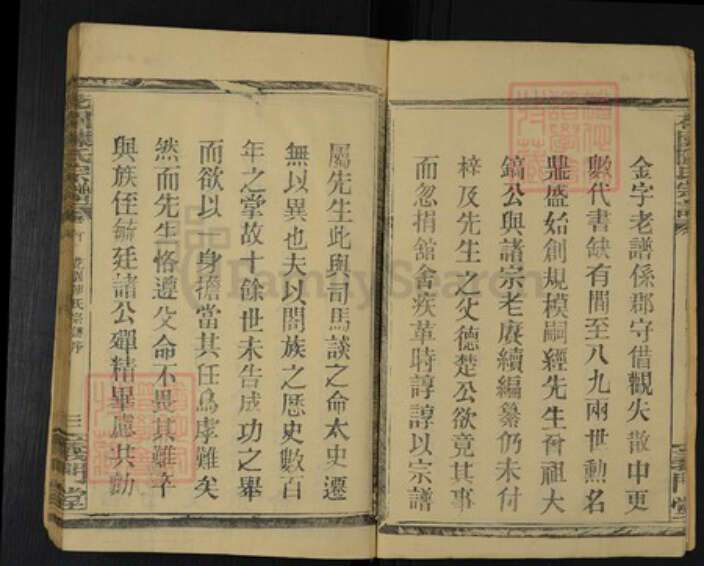 金字老譜係郡守借觀失散中更
數代書缺有間至八九兩世勳名
鼎盛始創規模嗣經先生曾祖大
鎬公與諸宗老賡續編纂仍未付
梓及先生之父德楚公欲竟其事
而忽捐舘舍疾革時諄諄以宗譜
屬先生此與司馬談之命太史遷
無以異也夫以閤族之歷史數百
年之掌故十餘世未告成功之舉
而欲以一身擔當其任烏虖難矣
然而先生恪遵父命不畏其難卒
與族侄毓廷諸公殫精畢慮共勷
氏宗譜
序
三
義門堂
FamilySearch